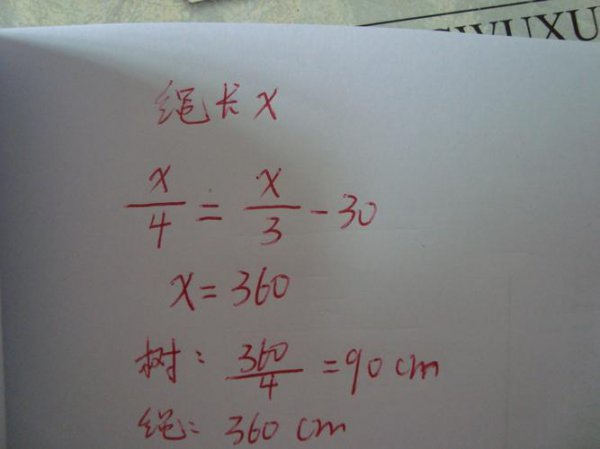 YUXU
绳长 x
x/4 = x/3 - 30
x = 360
树: 360/4 = 90 cm
绳: 360 cm